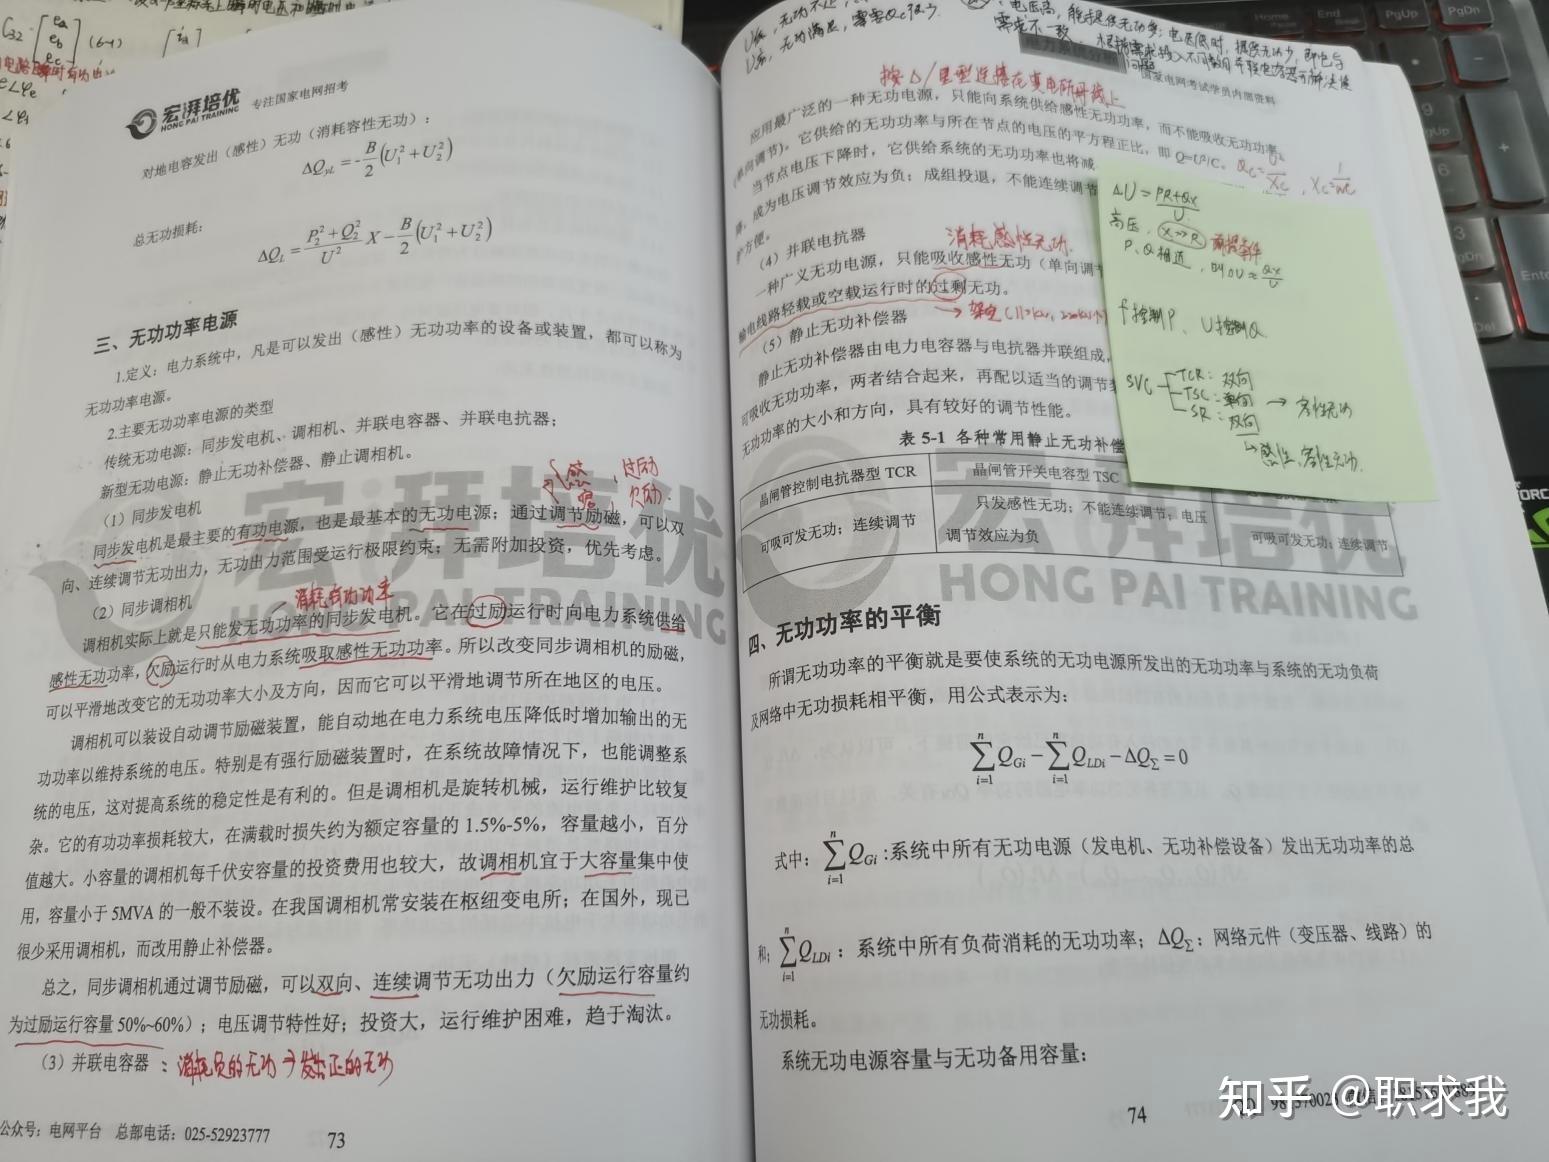 宏湃培优 专注国家电网招考
HONG PAI TRAINING
对地电容发出(感性)无功(消耗容性无功):
ΔQyL = -B/2(U₁²+U₂²)
总无功损耗:
ΔQL = (P₂²+Q₂²)/U² X - B/2(U₁²+U₂²)
三、无功功率电源
1.定义:电力系统中,凡是可以发出(感性)无功功率的设备或装置,都可以称为
无功功率电源。
2.主要无功功率电源的类型
传统无功电源:同步发电机、调相机、并联电容器、并联电抗器;
新型无功电源:静止无功补偿器、静止调相机。
(1)同步发电机
感 过励
欠励
同步发电机是最主要的有功电源,也是最基本的无功电源;通过调节励磁,可以双
向、连续调节无功出力,无功出力范围受运行极限约束;无需附加投资,优先考虑。
(2)同步调相机
消耗有功功率
调相机实际上就是只能发无功功率的同步发电机。它在过励运行时向电力系统供给
感性无功功率,欠励运行时从电力系统吸取感性无功功率。所以改变同步调相机的励磁,
可以平滑地改变它的无功功率大小及方向,因而它可以平滑地调节所在地区的电压。
调相机可以装设自动调节励磁装置,能自动地在电力系统电压降低时增加输出的无
功功率以维持系统的电压。特别是有强行励磁装置时,在系统故障情况下,也能调整系
统的电压,这对提高系统的稳定性是有利的。但是调相机是旋转机械,运行维护比较复
杂。它的有功功率损耗较大,在满载时损失约为额定容量的 1.5%-5%,容量越小,百分
值越大。小容量的调相机每千伏安容量的投资费用也较大,故调相机宜于大容量集中使
用,容量小于 5MVA 的一般不装设。在我国调相机常安装在枢纽变电所;在国外,现已
很少采用调相机,而改用静止补偿器。
总之,同步调相机通过调节励磁,可以双向、连续调节无功出力(欠励运行容量约
为过励运行容量 50%~60%);电压调节特性好;投资大,运行维护困难,趋于淘汰。
(3)并联电容器 :消耗负的无功→发出正的无功
公众号:电网平台 总部电话:025-52923777
73
国家电网考试学员内部资料
按△/星型连接在变电所母线上
应用最广泛的一种无功电源,只能向系统供给感性无功功率,而不能吸收无功功率
(单向调节)。它供给的无功功率与所在节点的电压的平方程正比,即 Q=U²/C。
当节点电压下降时,它供给系统的无功功率也将减
成为电压调节效应为负;成组投退,不能连续调节
护方便。
(4)并联电抗器 消耗感性无功.
一种广义无功电源,只能吸收感性无功(单向调节
输电线路轻载或空载运行时的过剩无功。
(5)静止无功补偿器
静止无功补偿器由电力电容器与电抗器并联组成,
可吸收无功功率,两者结合起来,再配以适当的调节
无功功率的大小和方向,具有较好的调节性能。
表 5-1 各种常用静止无功补偿
晶闸管控制电抗器型 TCR 晶闸管开关电容型 TSC
可吸可发无功;连续调节 只发感性无功;不能连续调节;电压 可吸可发无功;连续调节
调节效应为负
ΔU = (PR+QX)/U
高压,X>>R 前提条件
P、Q相近,则ΔU≈QX/U
f控制P、U控制Q.
SVC TCR:双向
TSC:单向 → 容性无功
SR:双向
↳感性、容性无功.
四、无功功率的平衡
所谓无功功率的平衡就是要使系统的无功电源所发出的无功功率与系统的无功负荷
及网络中无功损耗相平衡,用公式表示为:
∑QGi - ∑QLDi - ΔQΣ = 0
式中:∑QGi:系统中所有无功电源(发电机、无功补偿设备)发出无功功率的总
和;∑QLDi:系统中所有负荷消耗的无功功率;ΔQΣ:网络元件(变压器、线路)的
无功损耗。
系统无功电源容量与无功备用容量:
74
知乎 @职求我
宏湃培优
HONG PAI TRAINING
宏湃培优
HONG PAI TRAINING
Home
End
PgUp
PgDn
Enter